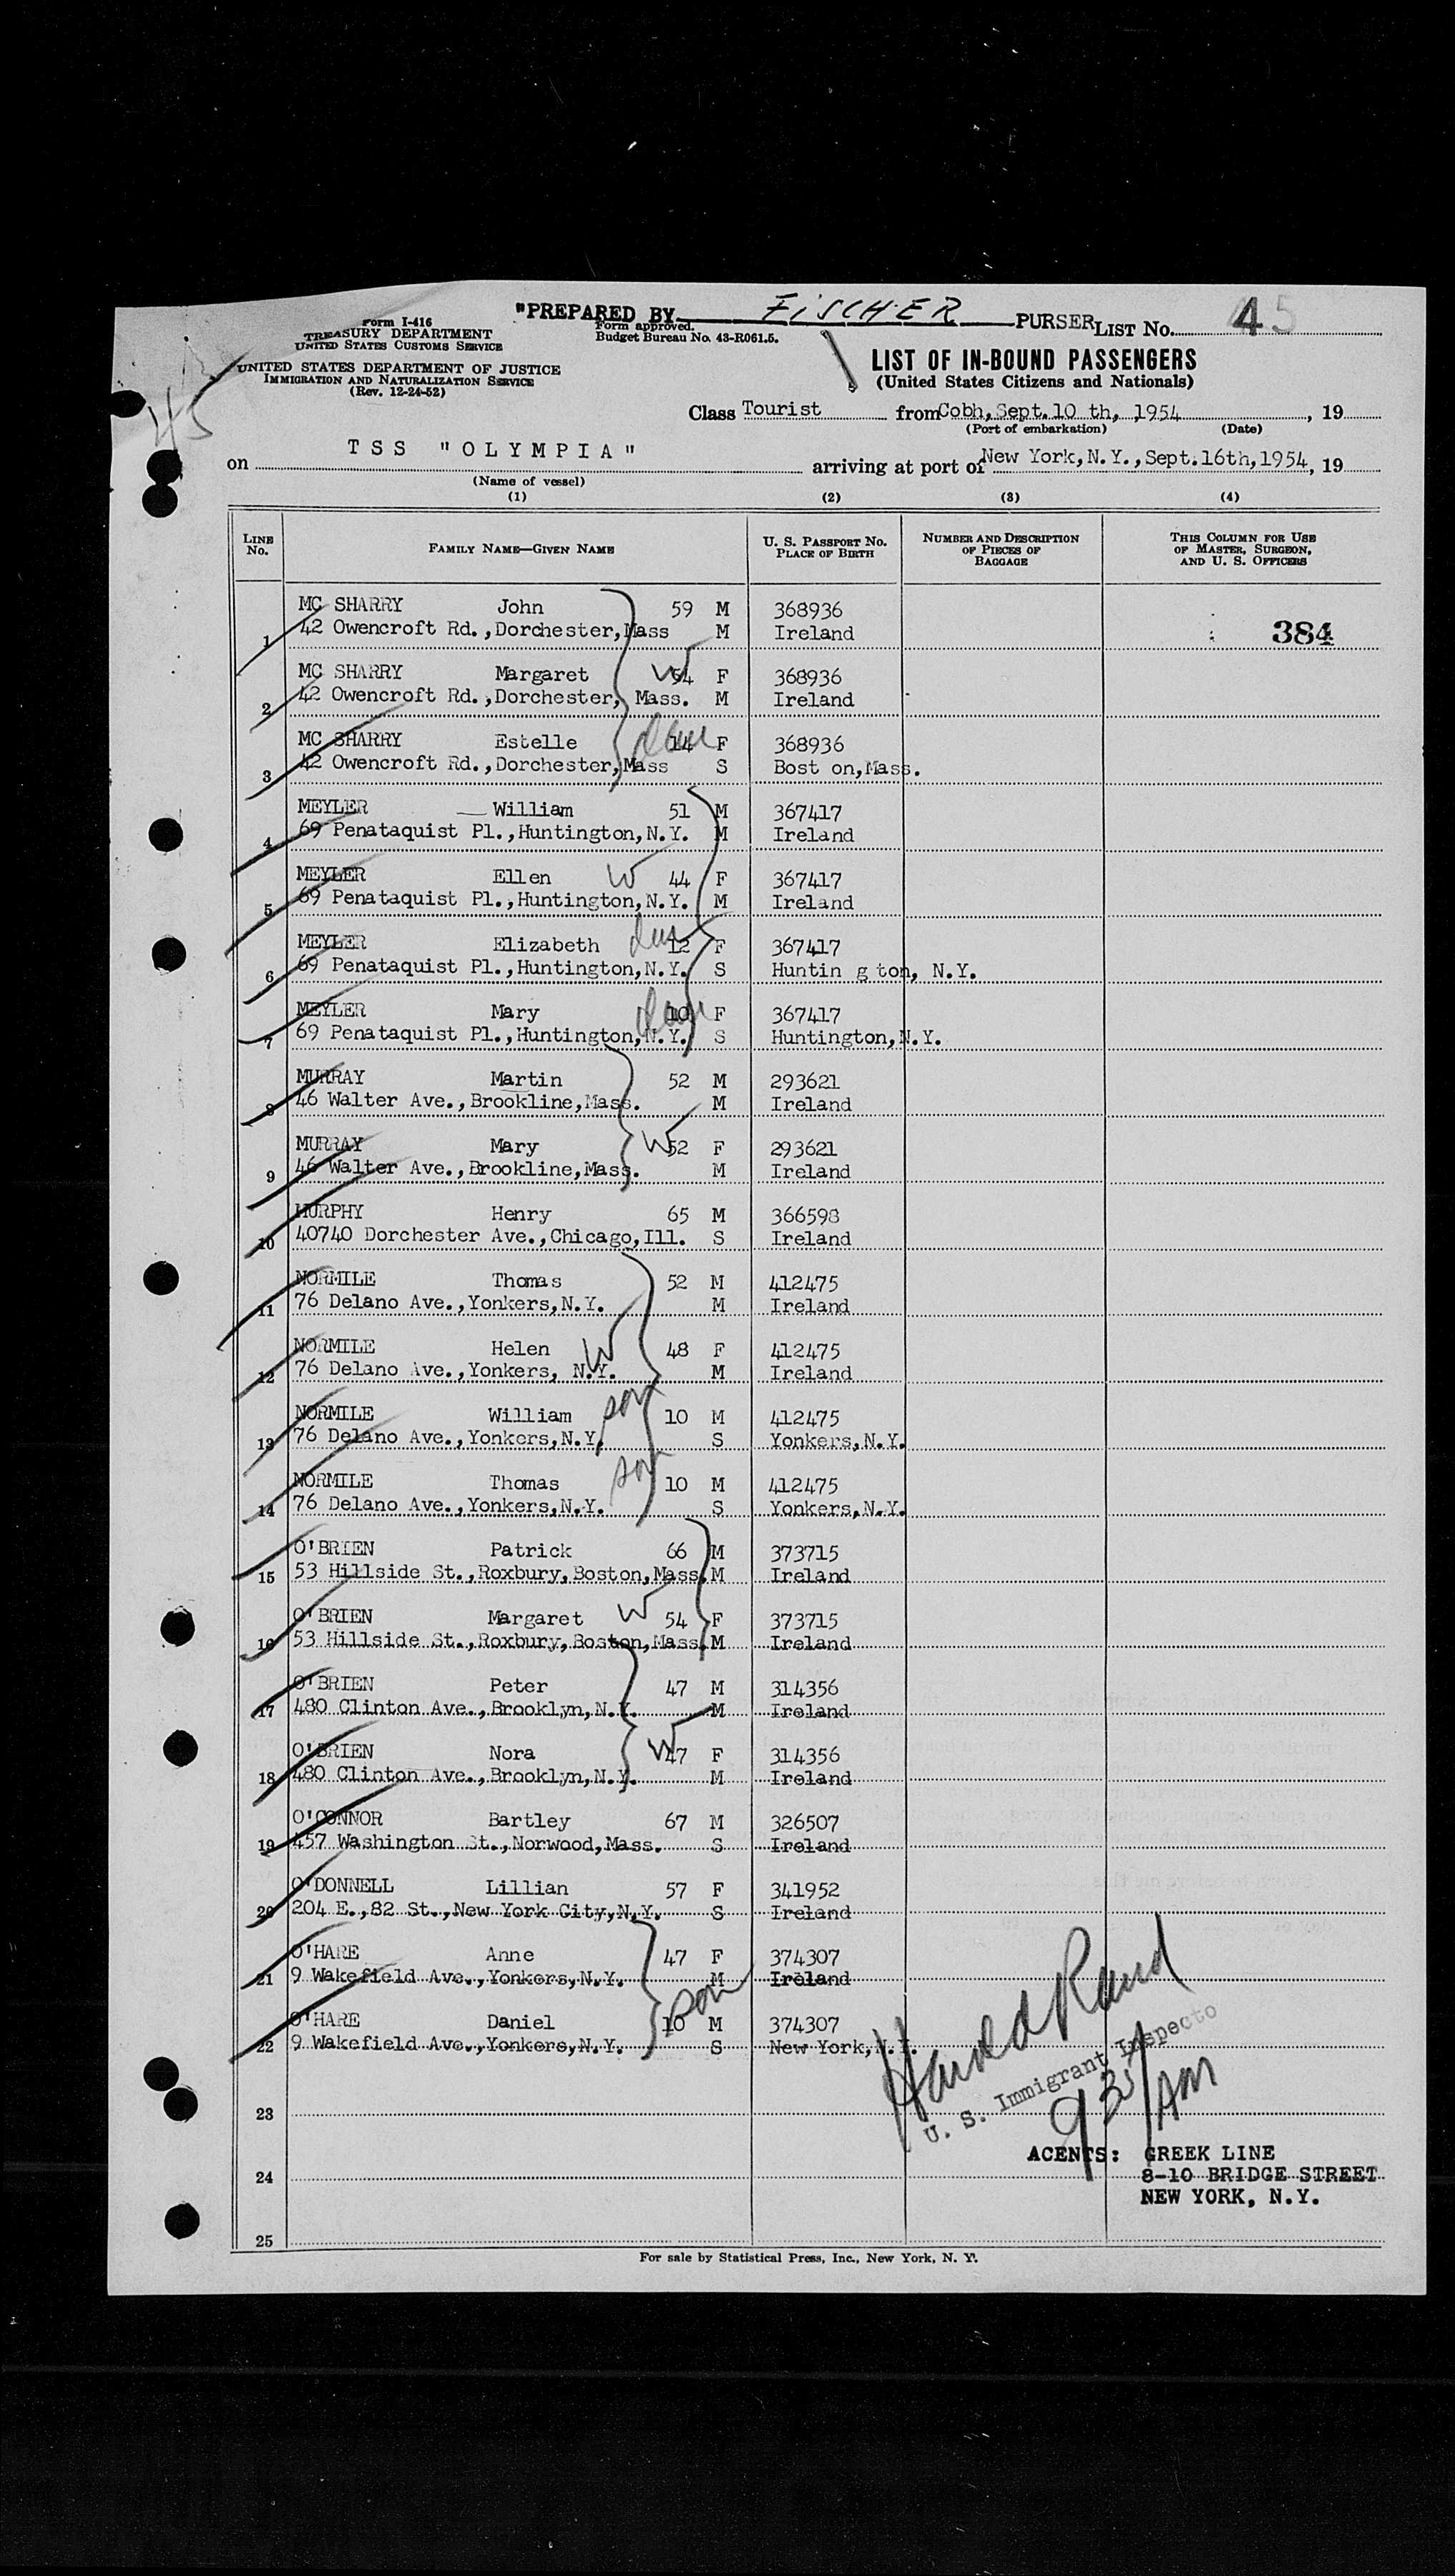 Form I-416
TREASURY DEPARTMENT
UNITED STATES CUSTOMS SERVICE
UNITED STATES DEPARTMENT OF JUSTICE
IMMIGRATION AND NATURALIZATION SERVICE
(Rev. 12-24-52)
45
"PREPARED BY FISCHER PURSER LIST No. 45
Form approved.
Budget Bureau No. 43-R061.5.
LIST OF IN-BOUND PASSENGERS
(United States Citizens and Nationals)
Class Tourist from Cobh, Sept. 10 th, ,1954 , 19
(Port of embarkation) (Date)
on TSS "OLYMPIA" arriving at port of New York, N.Y., Sept. 16th, 1954, 19
(Name of vessel)
(1) (2) (3) (4)
LINE No. FAMILY NAME—GIVEN NAME U. S. PASSPORT No. PLACE OF BIRTH NUMBER AND DESCRIPTION OF PIECES OF BAGGAGE THIS COLUMN FOR USE OF MASTER, SURGEON, AND U. S. OFFICERS
MC SHARRY John 59 M 368936
1 42 Owencroft Rd., Dorchester, Mass M Ireland 384
MC SHARRY Margaret W 54 F 368936
2 42 Owencroft Rd., Dorchester, Mass. M Ireland
MC SHARRY Estelle dau 14 F 368936
3 42 Owencroft Rd., Dorchester, Mass S Bost on, Mass.
MEYLER William 51 M 367417
4 69 Penataquist Pl., Huntington, N.Y. M Ireland
MEYLER Ellen W 44 F 367417
5 69 Penataquist Pl., Huntington, N.Y. M Ireland
MEYLER Elizabeth dau 12 F 367417
6 69 Penataquist Pl., Huntington, N.Y. S Huntin g ton, N.Y.
MEYLER Mary dau 10 F 367417
7 69 Penataquist Pl., Huntington, N.Y. S Huntington, N.Y.
MURRAY Martin 52 M 293621
8 46 Walter Ave., Brookline, Mass. M Ireland
MURRAY Mary W 52 F 293621
9 46 Walter Ave., Brookline, Mass. M Ireland
MURPHY Henry 65 M 366598
10 40740 Dorchester Ave., Chicago, Ill. S Ireland
NORMILE Thomas 52 M 412475
11 76 Delano Ave., Yonkers, N.Y. M Ireland
NORMILE Helen W 48 F 412475
12 76 Delano Ave., Yonkers, N.Y. M Ireland
NORMILE William son 10 M 412475
13 76 Delano Ave., Yonkers, N.Y. S Yonkers, N.Y.
NORMILE Thomas son 10 M 412475
14 76 Delano Ave., Yonkers, N.Y. S Yonkers, N.Y.
O'BRIEN Patrick 66 M 373715
15 53 Hillside St., Roxbury, Boston, Mass. M Ireland
O'BRIEN Margaret W 54 F 373715
16 53 Hillside St., Roxbury, Boston, Mass. M Ireland
O'BRIEN Peter 47 M 314356
17 480 Clinton Ave., Brooklyn, N.Y. M Ireland
O'BRIEN Nora W 47 F 314356
18 480 Clinton Ave., Brooklyn, N.Y. M Ireland
O'CONNOR Bartley 67 M 326507
19 457 Washington St., Norwood, Mass. S Ireland
O'DONNELL Lillian 57 F 341952
20 204 E., 82 St., New York City, N.Y. S Ireland
O'HARE Anne 47 F 374307
21 9 Wakefield Ave., Yonkers, N.Y. M Ireland
O'HARE Daniel son 10 M 374307
22 9 Wakefield Ave., Yonkers, N.Y. S New York, N.Y.
Harold Rand
U. S. Immigrant Inspecto
23
9 35 AM
AGENTS: GREEK LINE
24 8-10 BRIDGE STREET
NEW YORK, N.Y.
25
For sale by Statistical Press, Inc., New York, N. Y.